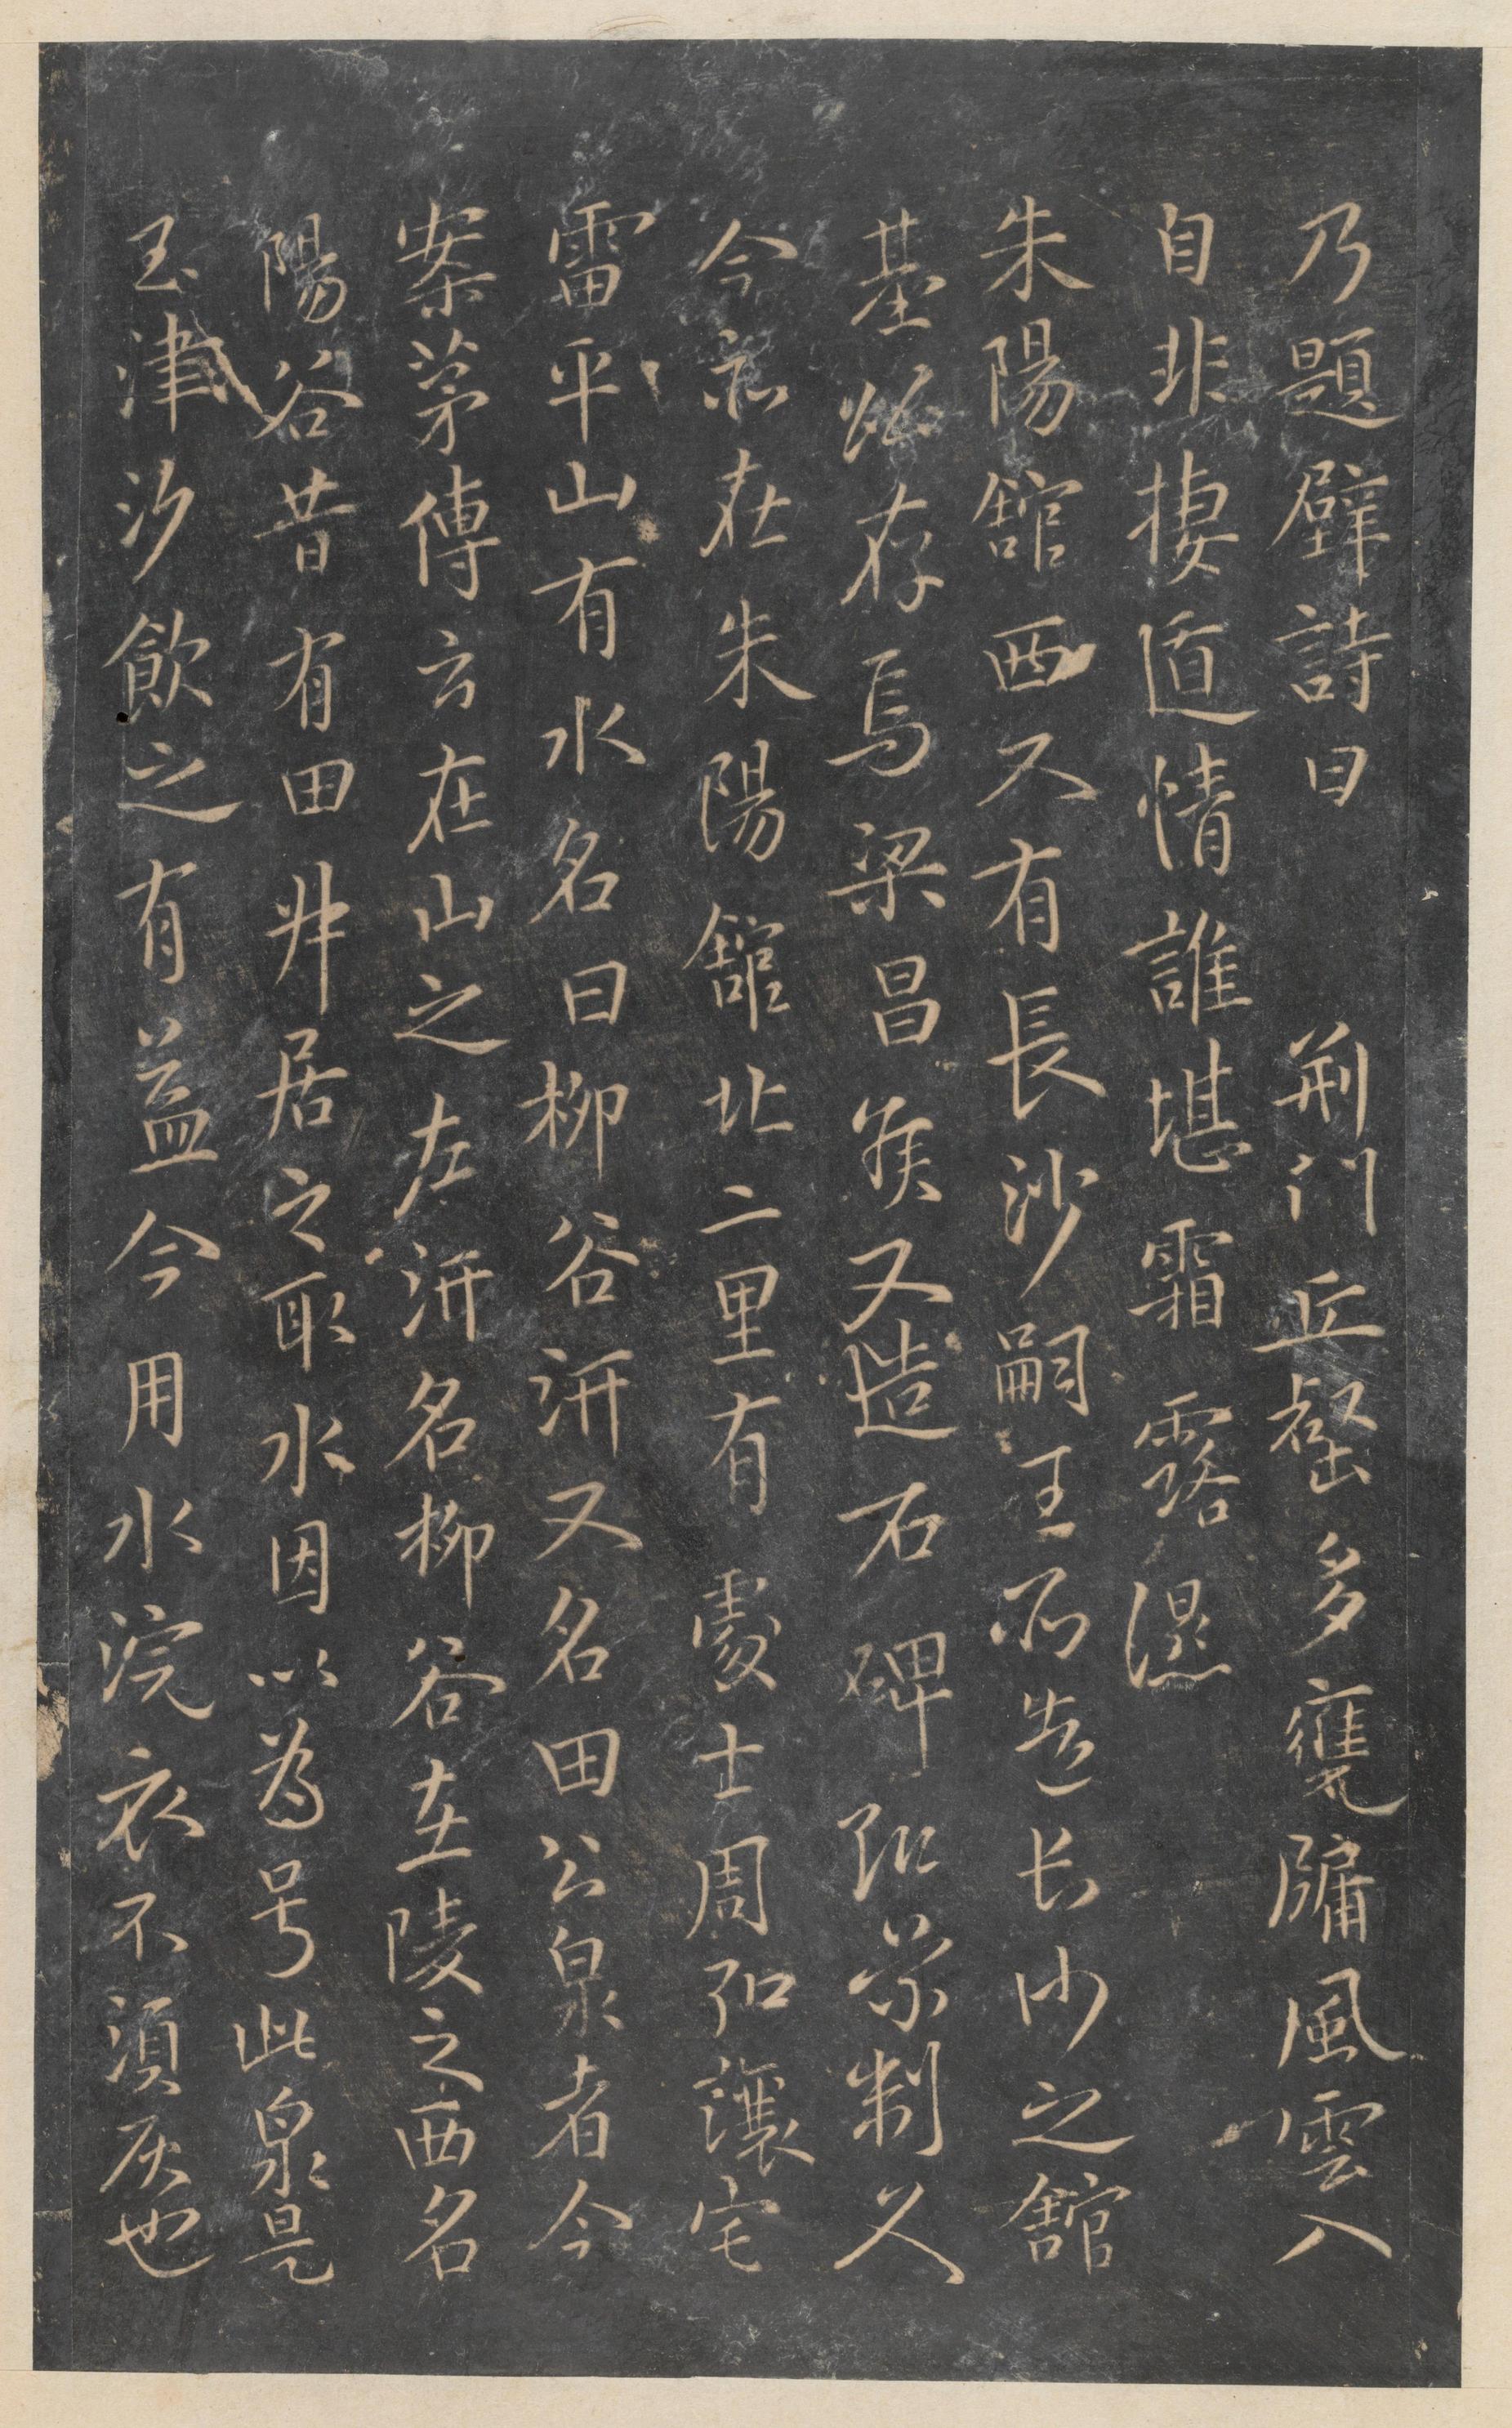 乃題壁詩曰　荆門丘壑多甕牖風雲入
自非棲遁情誰堪霜露濕
朱陽舘西又有長沙嗣王所造長沙之舘
基炤存焉梁昌矦又造石碑邵㳺制文
今亦在朱陽舘北二里有處士周弘讓宅
雷平山有水名曰柳谷汧又名田公泉者今
案茅傳云在山之左汧名柳谷在陵之西名
陽谷昔有田丼居之取水因以為号此泉是
玉津汐飲之有益今用水浣衣不湏灰也